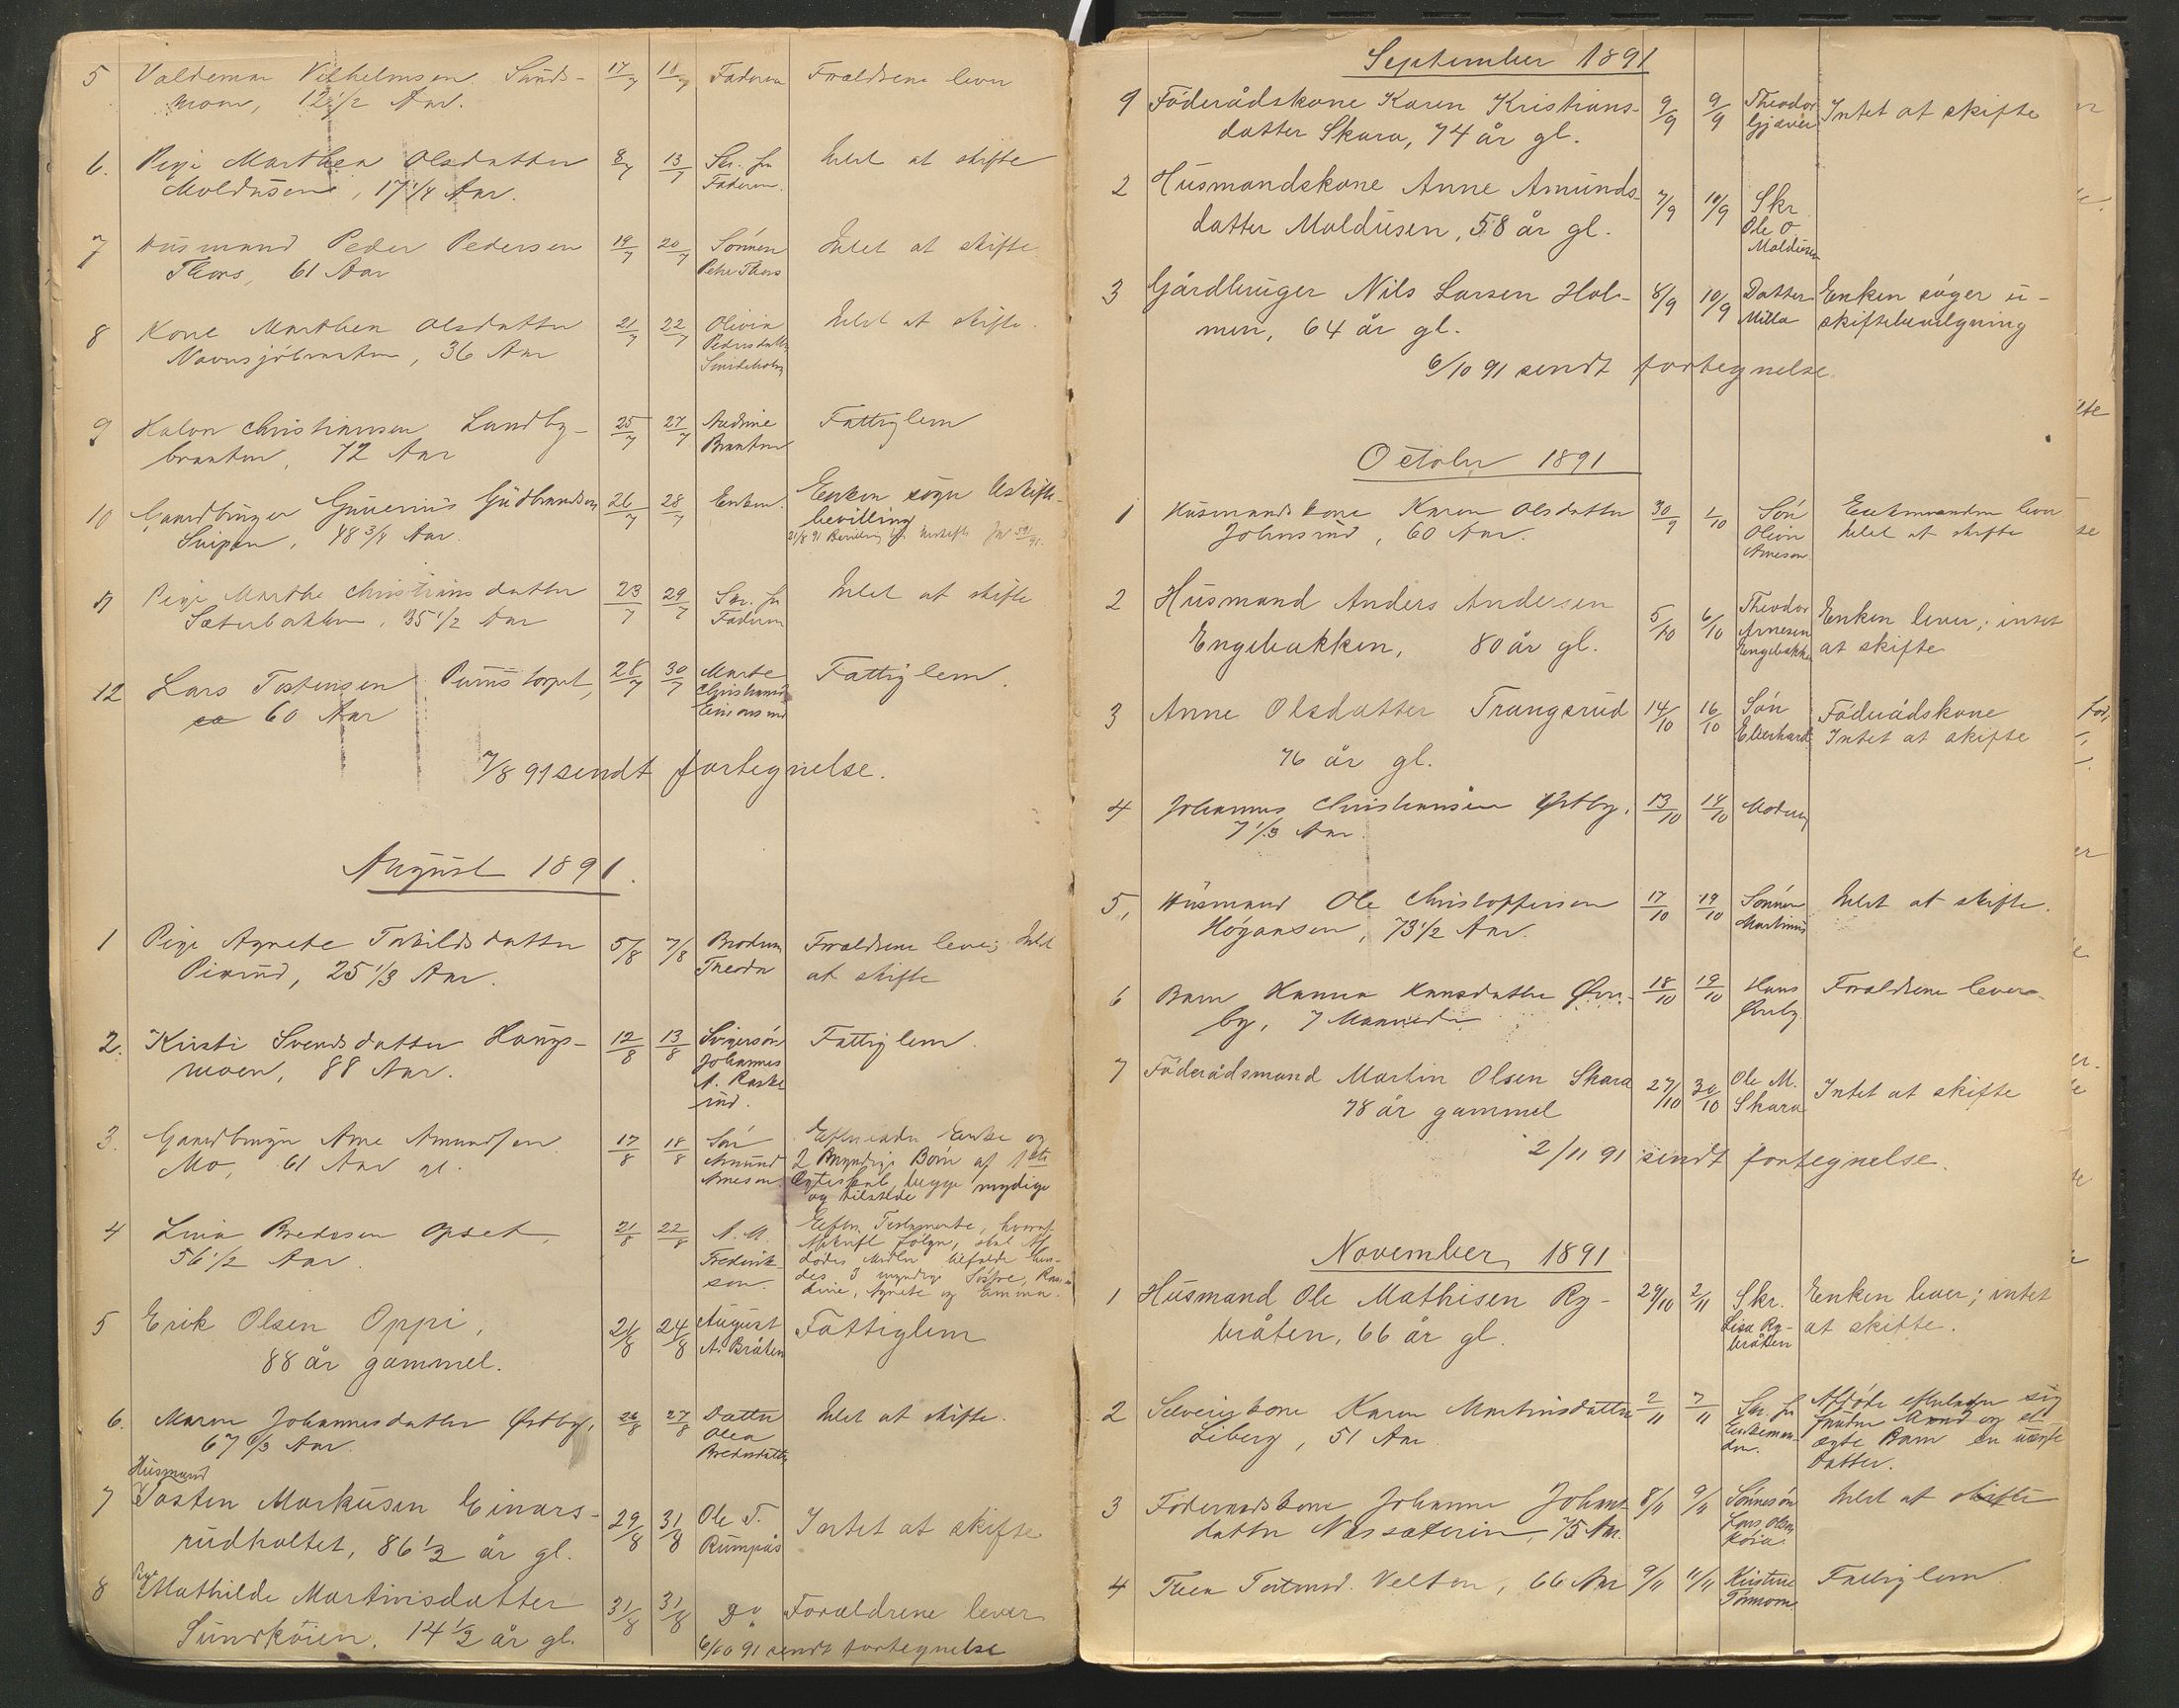 5 Valdemar Vilhelmsen Sunds- 17/7 18/7 Faderen Forældrene lever
moen, 12 1/2 Aar.
6. Pige Marthea Olsdatter 8/7 13/7 Skr. fra Intet at skifte
Moldusen, 17 1/4 Aar. Faderen.
7 Husmand Peder Pedersen 19/7 20/7 Sønnen Intet at skifte
Thors, 61 Aar Peder Thors
8 Kone Marthea Olsdatter 21/7 22/7 Olivia Intet at skifte.
36 Aar Pedersdatter
9 Halvor Christiansen Lundby- 25/7 27/7 Fattiglem
braaten, 72 Aar Braaten
10 Gaardbruger Gunerius Gudbrandsen 26/7 28/7 Enken. Enken søger Uskifte-
Snipen, 48 3/4 Aar. bevilling
21/8 91
11 Pige Marthe Christiansdatter 23/7 29/7 Skr. fra Intet at skifte
Sæterbakken, 35 1/2 Aar Faderen
12 Lars Tostensen 28/7 30/7 Marte Fattiglem.
ca 60 Aar Christiansd
7/8 91 sendt fortegnelse.
August 1891.
1 Pige Agnete Tobildsdatter 5/8 7/8 Broderen Forældrene lever; Intet
25 1/3 Aar. Theodor at skifte
2. Kristi Svendsdatter Haugs- 12/8 13/8 Svigersøn Fattiglem.
moen, 88 Aar. Johannes
A. Raske
rud.
3. Gaardbruger Arne Amundsen 17/8 18/8 Søn Efterlader Enke og
Mo, 61 Aar gl. Amund 2 Myndige Børn af 1ste
Arnesen. Ægteskab, begge myndige
og tilstede
4 Lina Bredesen Opset, 21/8 22/8 A. M. Efter Testamente, hvoraf
56 1/2 Aar. Fredrik- Afskrift følger, skal Af-
sen. dødes Midler tilfalde hen-
des 3 myndige Søstre,
dine, Agnete og Emma.
5 Erik Olsen Oppi, 21/8 24/8 August Fattiglem
88 år gammel. A. Bråten
6. Maren Johannesdatter Østby, 26/8 27/8 Datter Intet at skifte.
67 Aar. Olea
Bredesdatter
Husmand
7 Tosten Markusen Einars- 29/8 31/8 Ole T. Intet at skifte
rudholtet, 86 1/2 år gl. Rumpås
Pige
8 Mathilde Martinsdatter 31/8 31/8 Do Forældrene lever
Sundkøien. 14 1/2 år gl.
6/10 91 sendt fortegnelse
September 1891
1 Föderådskone Karen Kristians- 9/9 9/9 Theodor Intet at skifte
datter Skara, 74 år gl. Gjæver
2 Husmandskone Anne Amunds- 7/9 10/9 Skr.
datter Moldusen, 58 år gl. Ole O
Moldusen
3 Gårdbruger Nils Larsen Hol- 8/9 10/9 Datter Enken søger u-
men, 64 år gl. Milla skiftebevilgning
6/10 91 sendt fortegnelse.
October 1891
1 Husmandskone Karen Olsdatter 30/9 1/10 Søn Enkemanden lever
Johnsrud, 60 Aar. Oliver Intet at skifte
Arnesen.
2 Husmand Anders Andersen 5/10 6/10 Theodor Enken lever; intet
Engebakken, 80 år gl. Arnesen at skifte
Engebakken
3 Anne Olsdatter Trangsrud 14/10 16/10 Søn Föderådskone
76 år gl. Edverhard Intet at skifte
4 Johannes Christiansen Østby, 13/10 14/10 Moderen
7 1/3 Aar.
5, Husmand Ole Christoffersen 17/10 19/10 Sønnen Intet at skifte.
Høgaasen, 73 1/2 Aar. Martinus
6 Barn Hanna Hansdatter Øvre- 18/10 19/10 Hans Forældrene lever
by, 7 Maaneder Øreby
7 Föderådsmand Martin Olsen Skara 27/10 30/10 Ole M. Intet at skifte
78 år gammel Skara
2/11 91 sendt fortegnelse.
November 1891
1 Husmand Ole Mathisen Ry- 29/10 2/11 Skr. Enken lever; intet
bråten, 66 år gl. Lisa Ry- at skifte.
bråten
2 Selveierkone Karen Martinsdatter 2/11 7/11 Skr. fra Afdøde efterlader sig
Liberg, 51 Aar Enkeman- foruden Mand og et
den. ægte Barn en uægte
Datter.
3 Föderaadskone Johanne Johans- 8/11 9/11 Sønnesøn Intet at skifte
datter 75 Aar. Lars Olsen
Køia.
4 Thea 66 Aar 9/11 11/11 Kristine Fattiglem